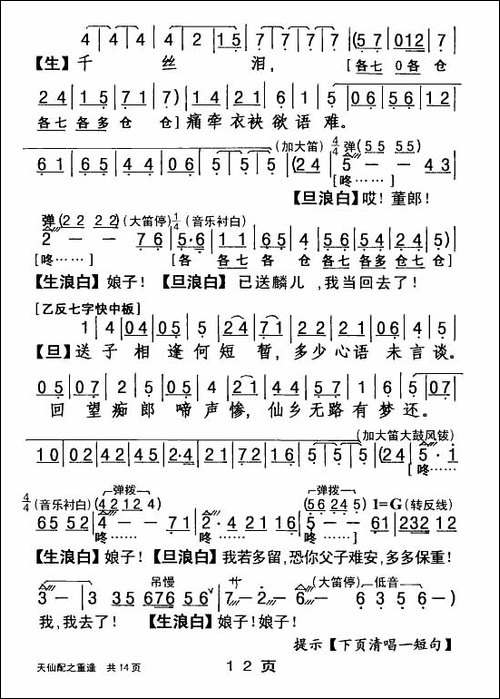 4 4 4 4 2 1 5 7 7 7 7 (5 7 0 1 2 7
【生】千 丝 泪， [各七 0各 仓
2 4 1 5 7 1 7) 1 4 2 1 6 1 5 (0 6 5 6 1 2
各七 各多 仓 仓] 痛牵衣袂欲语难。
(加大笛) 4/4 弹(5 5 5 5)
6 1 6 5 4 4 0 6 5 5 5 (2 4 5 - - 4 3
[咚……]
【旦浪白】哎！董郎！
弹(2 2 2 2)(大笛停) 1/4 (音乐衬白)
2 - - 7 6 5·6 5 1 6 5 4 5 6 5 4 2 4 5)
[咚……] [各 各七 各仓 各七 各多 仓七 仓]
【生浪白】娘子！【旦浪白】已送麟儿，我当回去了！
[乙反七字快中板]
1 0 4 0 5 5 2 4 7 1 2 1 0 2 4 4 5
【旦】送子相逢何短暂，多少心语未言谈。
0 5 0 7 2 0 5 4 2 1 5 7 5 7 1 6 5 (0 7
回望痴郎啼声惨，仙乡无路有梦还。
(加大笛大鼓风钹)
1 0 0 2 4 2 4 5 2·4 2 1 7 2 1 6 5 5 5 (2 4 5 · 1
[咚……]
4/4 (音乐衬白) 弹拨 (4 2 1 2 4) 弹拨 (5 6 2 4 5) 1=G(转反线)
6 5 5 2 4 - - 7 1 2·4 2 2 1 6 5 - - 6 1 2 3 2 1 2
咚…… 咚…… 咚……
【生浪白】娘子！【旦浪白】我若多留，恐你父子难安，多多保重！
吊慢 サ (大笛停) 低音
3 - 3 2 3 5 6 7 6 5 6 7 - 2 - 6 - 6 3 5 6 -)
我，我去了！【生浪白】娘子！娘子！
提示【下页清唱一短句】
天仙配之重逢 共14页 12页